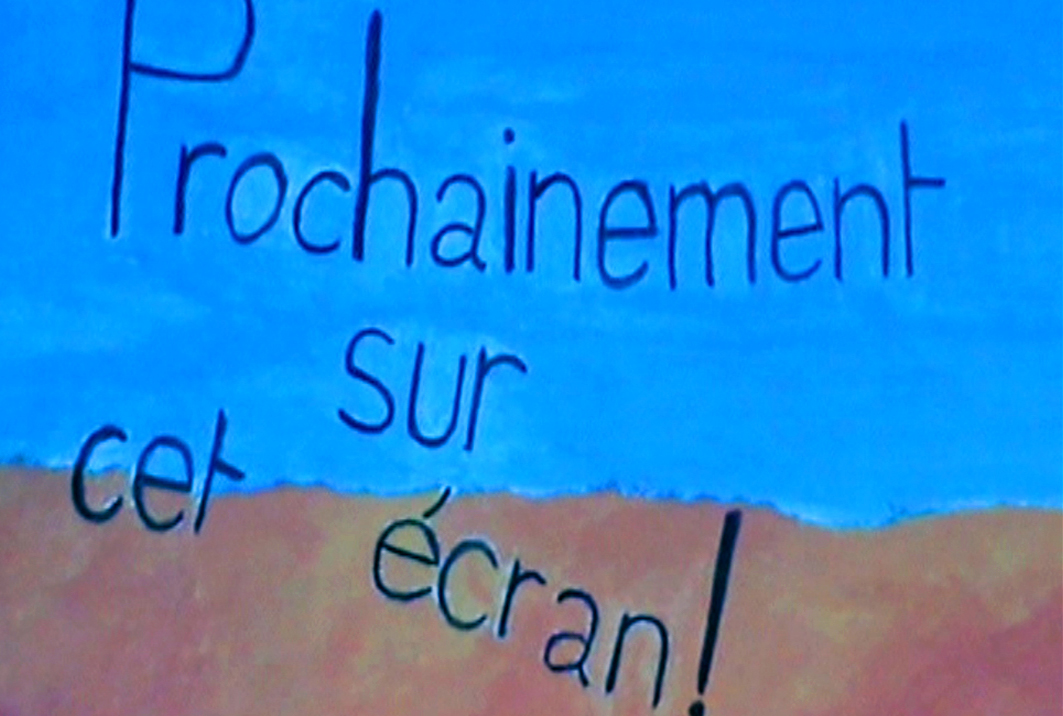 Prochainement
sur
cet écran!